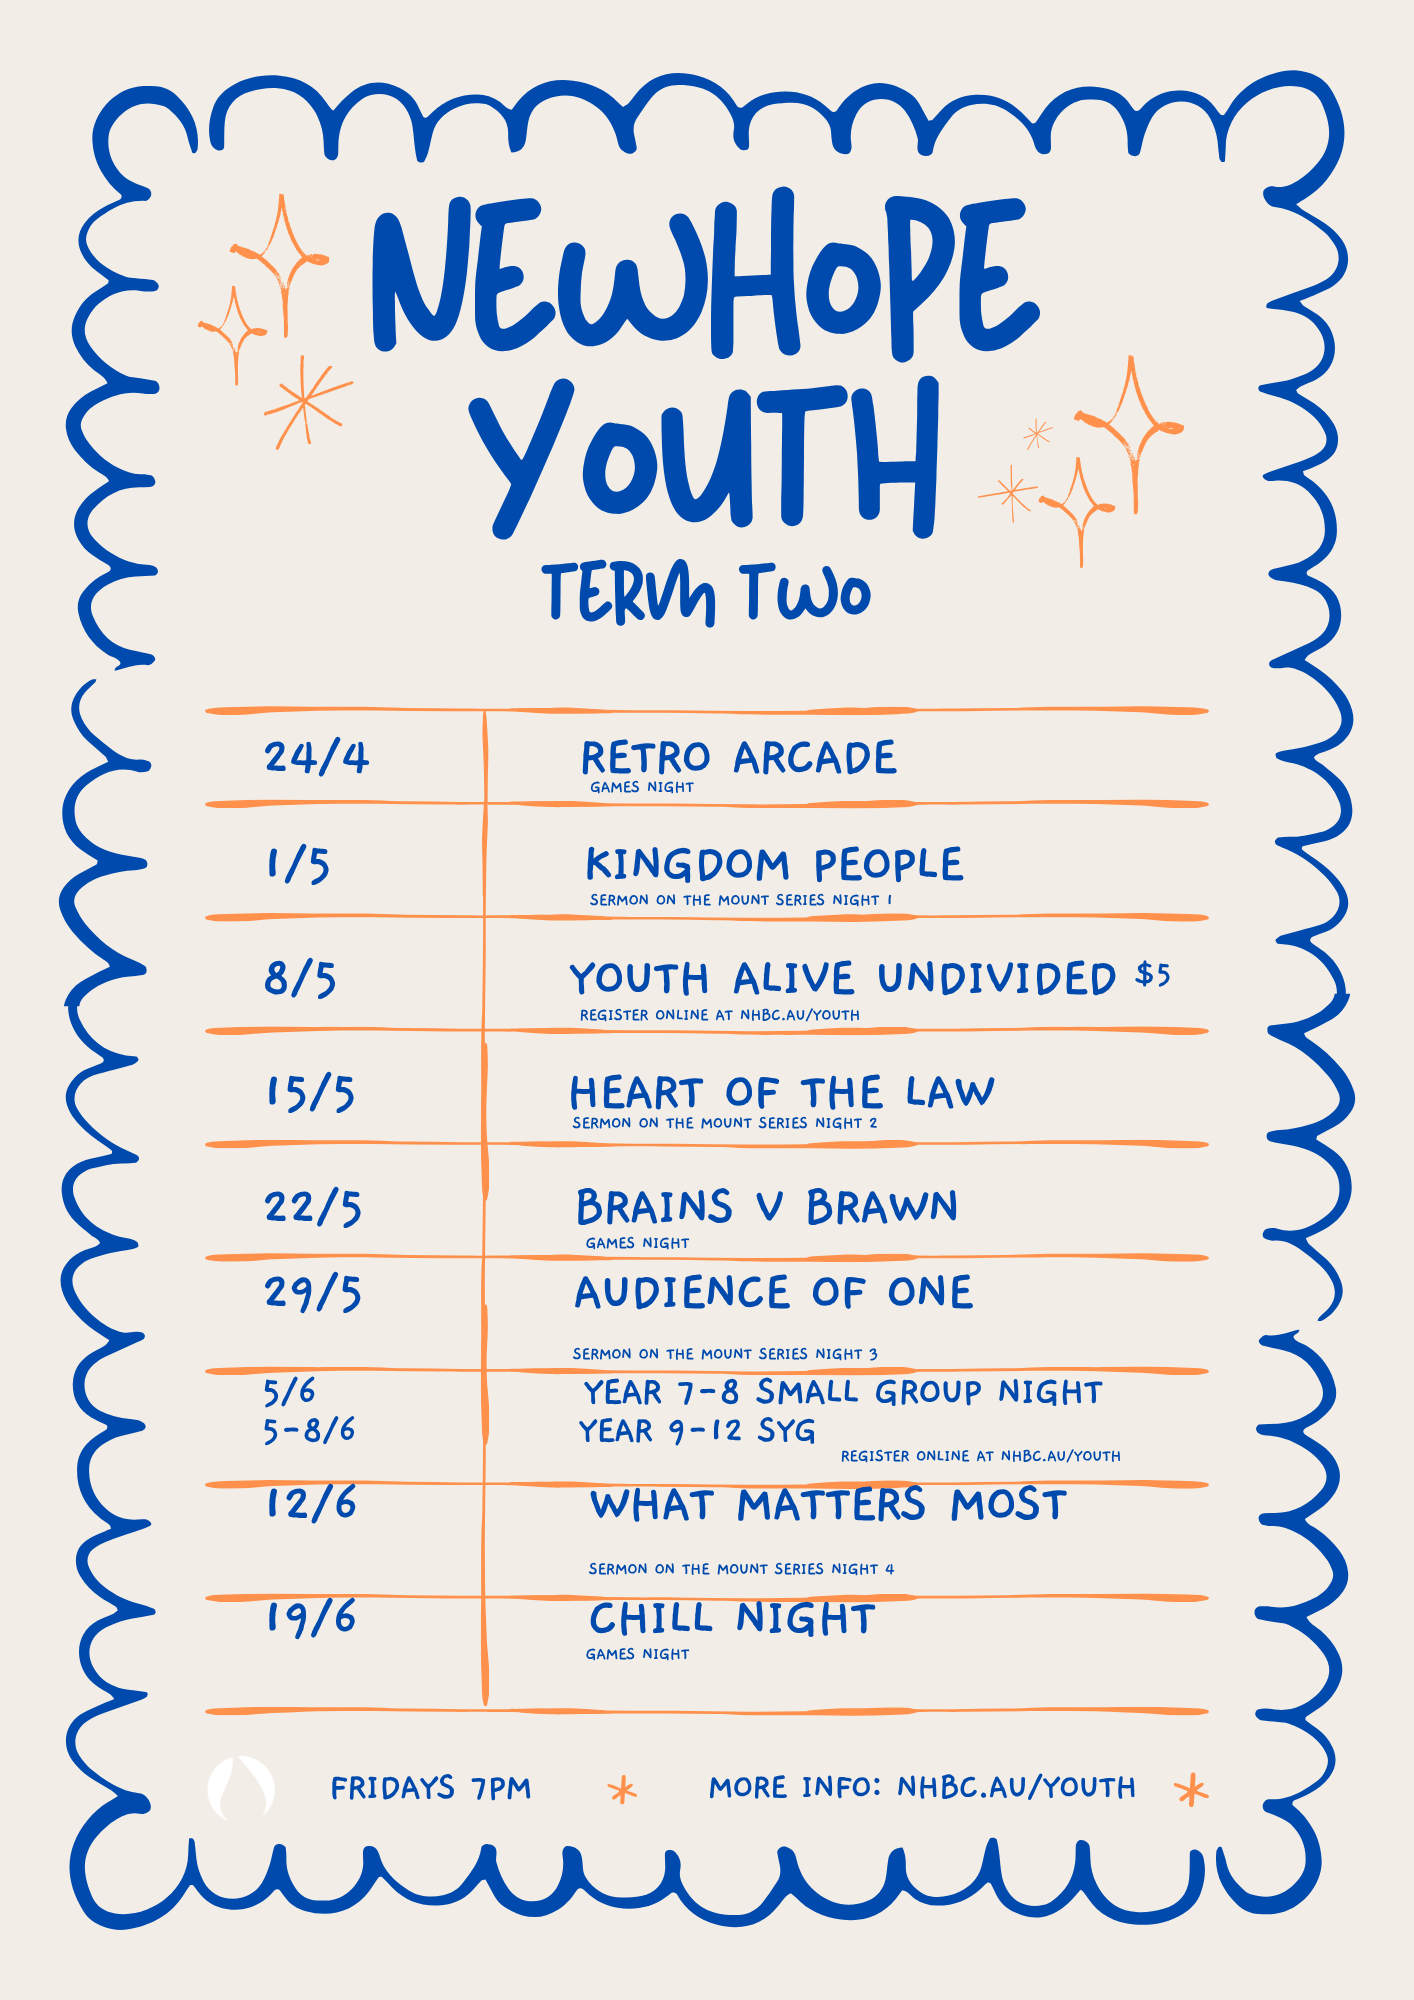 NEWHOPE
YOUTH
TERM TWO
24/4 RETRO ARCADE
GAMES NIGHT
1/5 KINGDOM PEOPLE
SERMON ON THE MOUNT SERIES NIGHT 1
8/5 YOUTH ALIVE UNDIVIDED $5
REGISTER ONLINE AT NHBC.AU/YOUTH
15/5 HEART OF THE LAW
SERMON ON THE MOUNT SERIES NIGHT 2
22/5 BRAINS V BRAWN
GAMES NIGHT
29/5 AUDIENCE OF ONE
SERMON ON THE MOUNT SERIES NIGHT 3
5/6 YEAR 7-8 SMALL GROUP NIGHT
5-8/6 YEAR 9-12 SYG
REGISTER ONLINE AT NHBC.AU/YOUTH
12/6 WHAT MATTERS MOST
SERMON ON THE MOUNT SERIES NIGHT 4
19/6 CHILL NIGHT
GAMES NIGHT
FRIDAYS 7PM * MORE INFO: NHBC.AU/YOUTH *